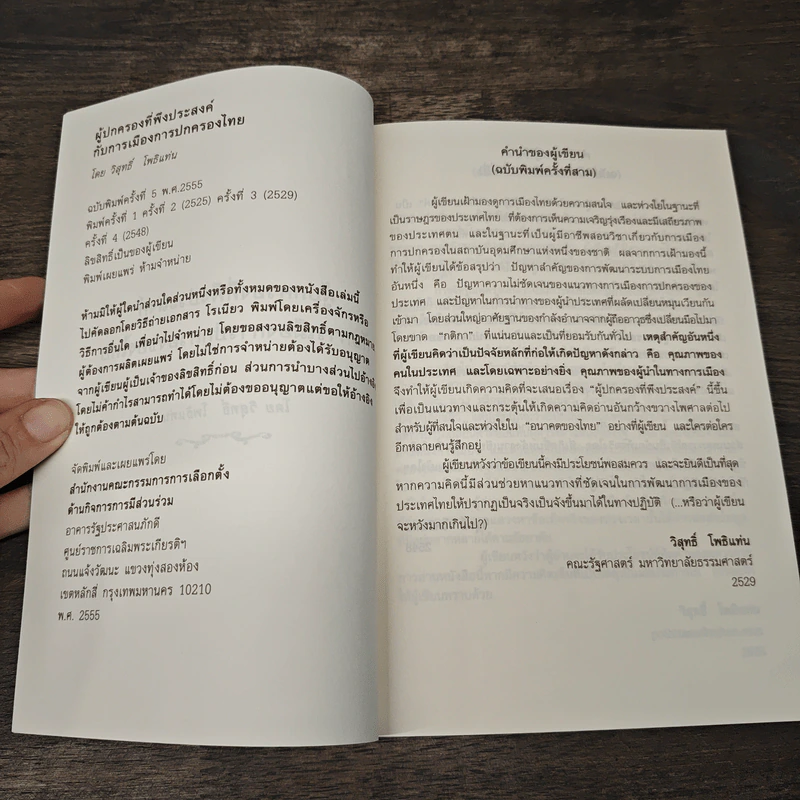 ผู้ปกครองที่พึงประสงค์
กับการเมืองการปกครองไทย
โดย วิสุทธิ์ โพธิแท่น
ฉบับพิมพ์ครั้งที่ 5 พ.ศ.2555
พิมพ์ครั้งที่ 1 ครั้งที่ 2 (2525) ครั้งที่ 3 (2529)
ครั้งที่ 4 (2548)
ลิขสิทธิ์เป็นของผู้เขียน
พิมพ์เผยแพร่ ห้ามจำหน่าย
ห้ามมิให้ผู้ใดนำส่วนใดส่วนหนึ่งหรือทั้งหมดของหนังสือเล่มนี้
ไปคัดลอกโดยวิธีถ่ายเอกสาร โรเนียว พิมพ์โดยเครื่องจักรหรือ
วิธีการอื่นใด เพื่อนำไปจำหน่าย โดยขอสงวนลิขสิทธิ์ตามกฎหมาย
ผู้ต้องการผลิตเผยแพร่ โดยไม่ใช่การจำหน่ายต้องได้รับอนุญาต
จากผู้เขียนผู้เป็นเจ้าของลิขสิทธิ์ก่อน ส่วนการนำบางส่วนไปอ้างอิง
โดยไม่ค้ากำไรสามารถทำได้โดยไม่ต้องขออนุญาตแต่ขอให้อ้างอิง
ให้ถูกต้องตามต้นฉบับ
จัดพิมพ์และเผยแพร่โดย
สำนักงานคณะกรรมการการเลือกตั้ง
ด้านกิจการการมีส่วนร่วม
อาคารรัฐประศาสนภักดี
ศูนย์ราชการเฉลิมพระเกียรติฯ
ถนนแจ้งวัฒนะ แขวงทุ่งสองห้อง
เขตหลักสี่ กรุงเทพมหานคร 10210
พ.ศ. 2555
คำนำของผู้เขียน
(ฉบับพิมพ์ครั้งที่สาม)
ผู้เขียนเฝ้ามองดูการเมืองไทยด้วยความสนใจ และห่วงใยในฐานะที่
เป็นราษฎรของประเทศไทย ที่ต้องการเห็นความเจริญรุ่งเรืองและมีเสถียรภาพ
ของประเทศตน และในฐานะที่เป็นผู้มีอาชีพสอนวิชาเกี่ยวกับการเมือง
การปกครองในสถาบันอุดมศึกษาแห่งหนึ่งของชาติ ผลจากการเฝ้ามองนี้
ทำให้ผู้เขียนได้ข้อสรุปว่า ปัญหาสำคัญของการพัฒนาระบบการเมืองไทย
อันหนึ่ง คือ ปัญหาความไม่ชัดเจนของแนวทางการเมืองการปกครองของ
ประเทศ และปัญหาในการนำทางของผู้นำประเทศที่ผลัดเปลี่ยนหมุนเวียนกัน
เข้ามา โดยส่วนใหญ่อาศัยฐานของกำลังอำนาจจากผู้ถืออาวุธซึ่งเปลี่ยนมือไปมา
โดยขาด “กติกา” ที่แน่นอนและเป็นที่ยอมรับกันทั่วไป เหตุสำคัญอันหนึ่ง
ที่ผู้เขียนคิดว่าเป็นปัจจัยหลักที่ก่อให้เกิดปัญหาดังกล่าว คือ คุณภาพของ
คนในประเทศ และโดยเฉพาะอย่างยิ่ง คุณภาพของผู้นำในทางการเมือง
จึงทำให้ผู้เขียนเกิดความคิดที่จะเสนอเรื่อง “ผู้ปกครองที่พึงประสงค์” นี้ขึ้น
เพื่อเป็นแนวทางและกระตุ้นให้เกิดความคิดอ่านอันกว้างขวางไพศาลต่อไป
สำหรับผู้ที่สนใจและห่วงใย ใน “อนาคตของไทย” อย่างที่ผู้เขียน และใครต่อใคร
อีกหลายคนรู้สึกอยู่
ผู้เขียนหวังว่าข้อเขียนนี้คงมีประโยชน์พอสมควร และจะยินดีเป็นที่สุด
หากความคิดนี้มีส่วนช่วยหาแนวทางที่ชัดเจนในการพัฒนาการเมืองของ
ประเทศไทยให้ปรากฏเป็นจริงเป็นจังขึ้นมาได้ในทางปฏิบัติ (...หรือว่าผู้เขียน
จะหวังมากเกินไป?)
วิสุทธิ์ โพธิแท่น
คณะรัฐศาสตร์ มหาวิทยาลัยธรรมศาสตร์
2529